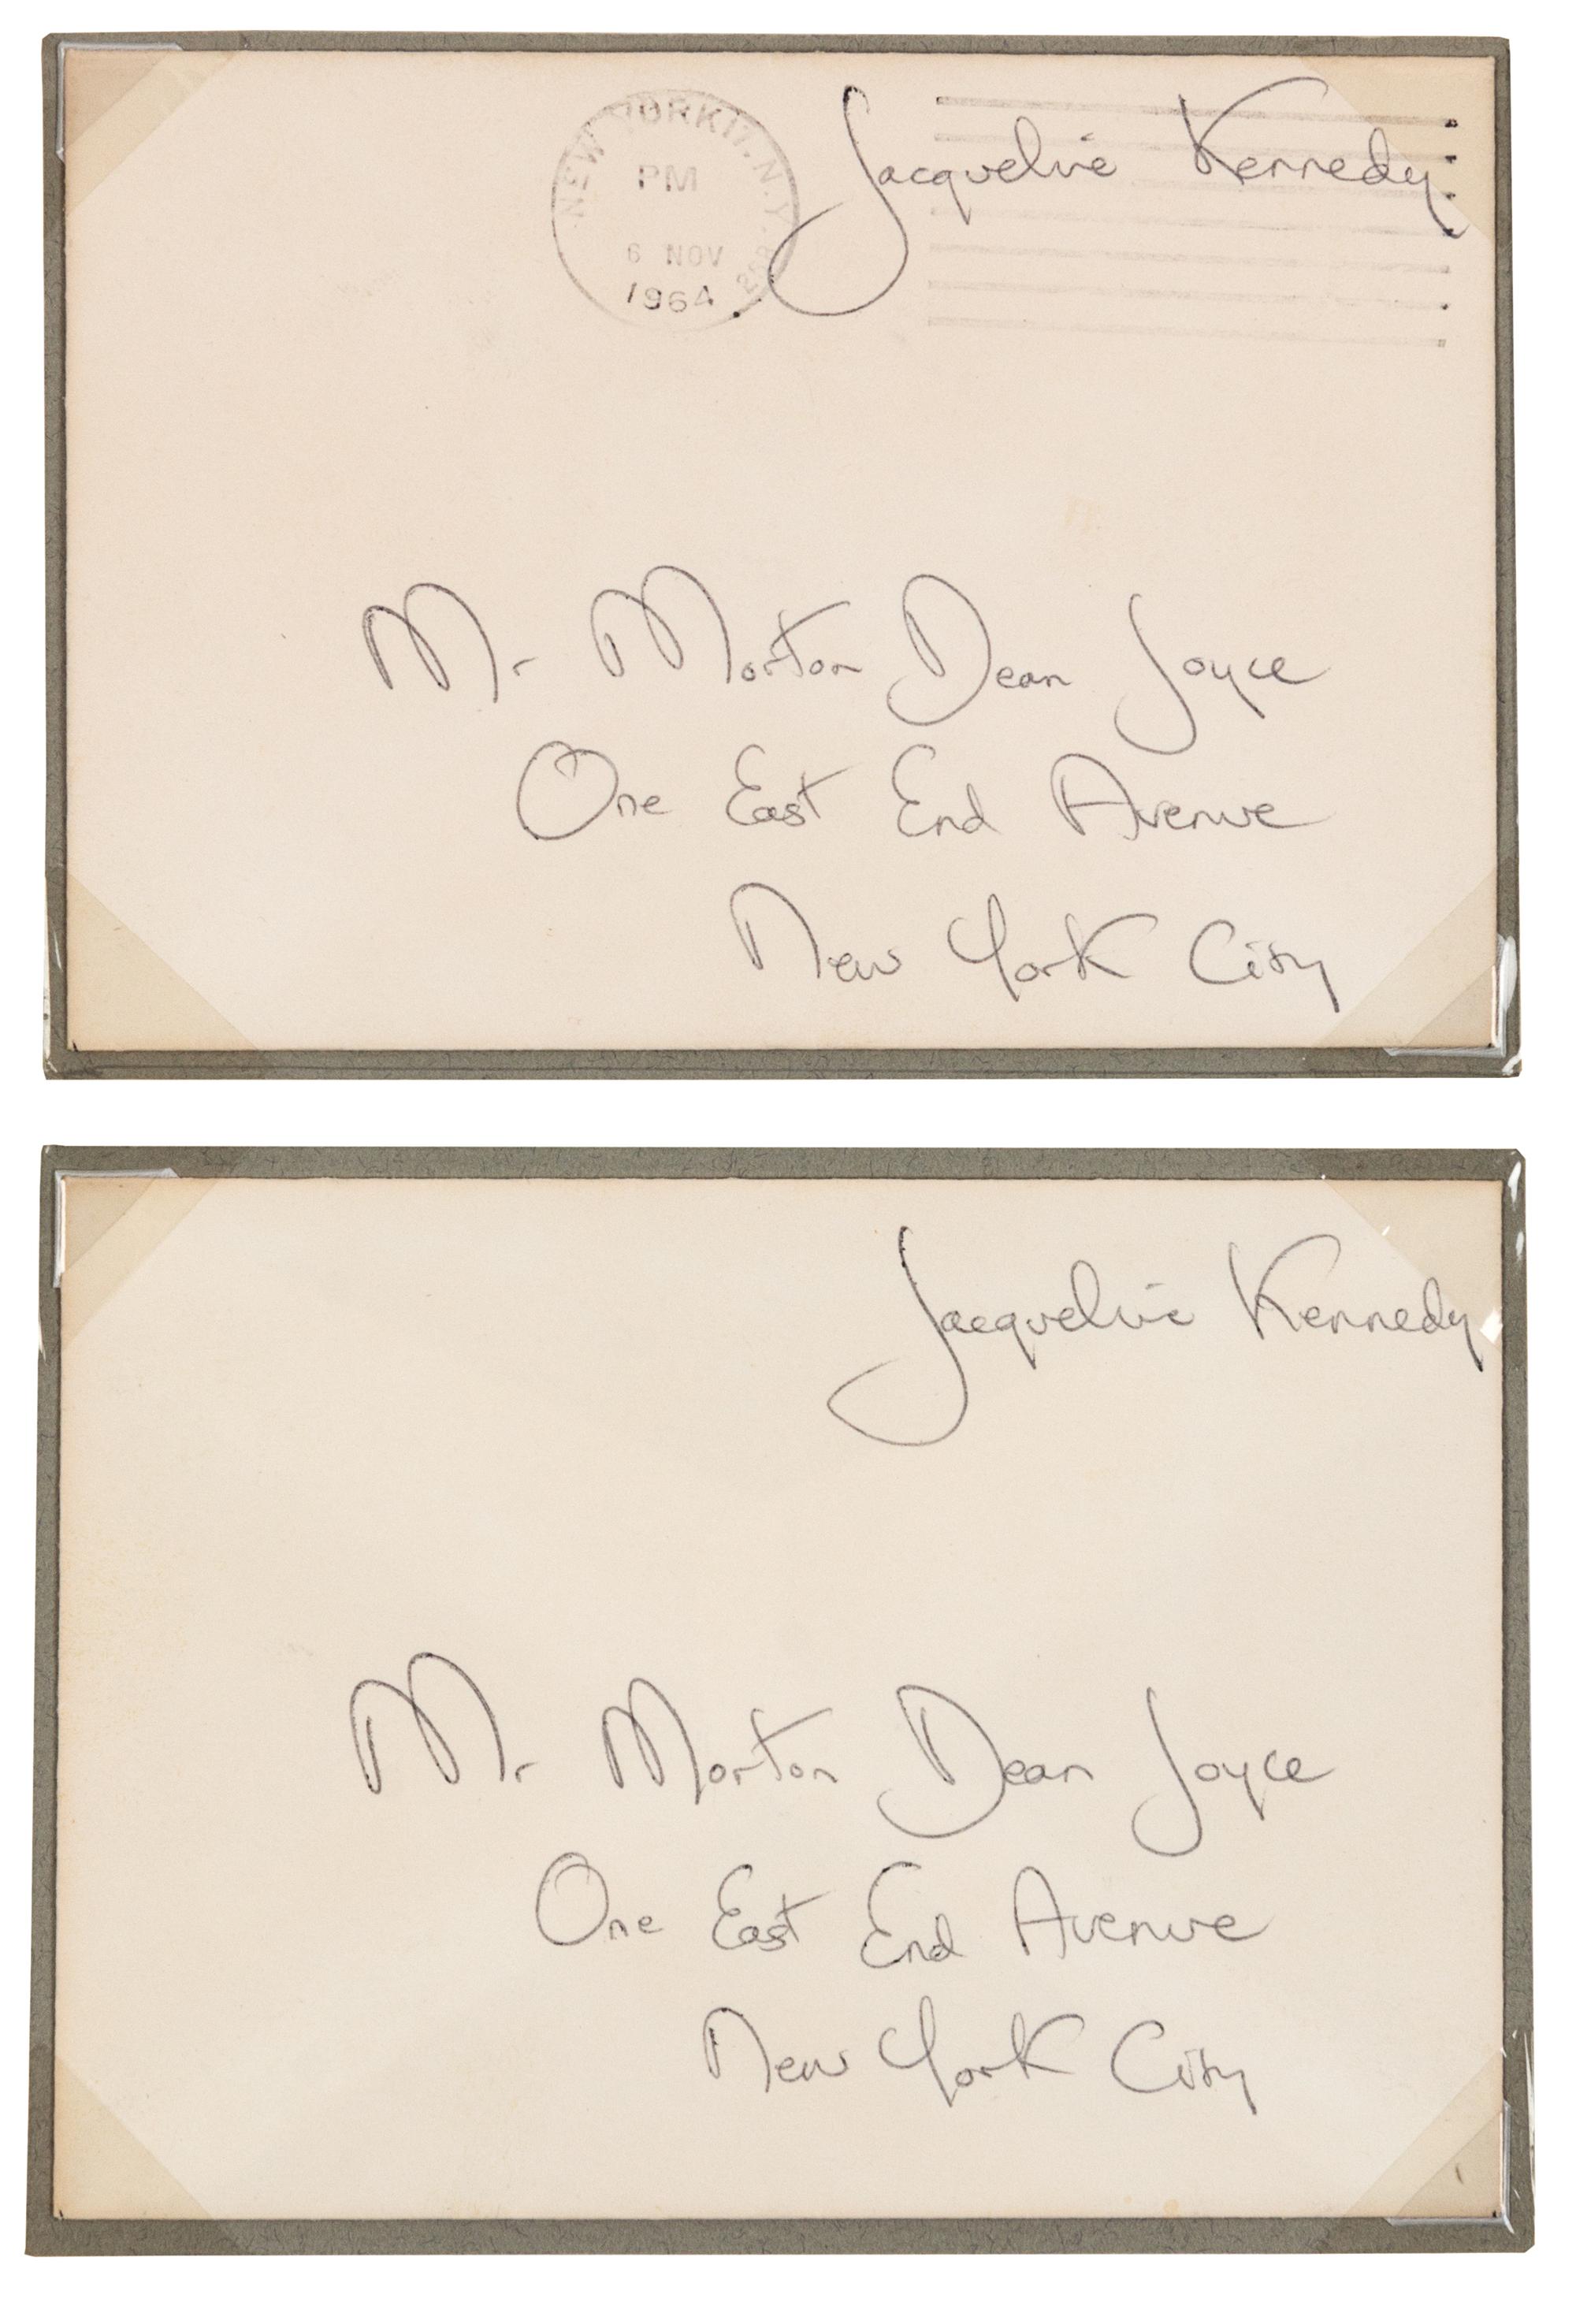 NEW YORK N.Y.
PM
6 NOV
1964
Jacqueline Kennedy
Mr Morton Dean Joyce
One East End Avenue
New York City
Jacqueline Kennedy
Mr Morton Dean Joyce
One East End Avenue
New York City